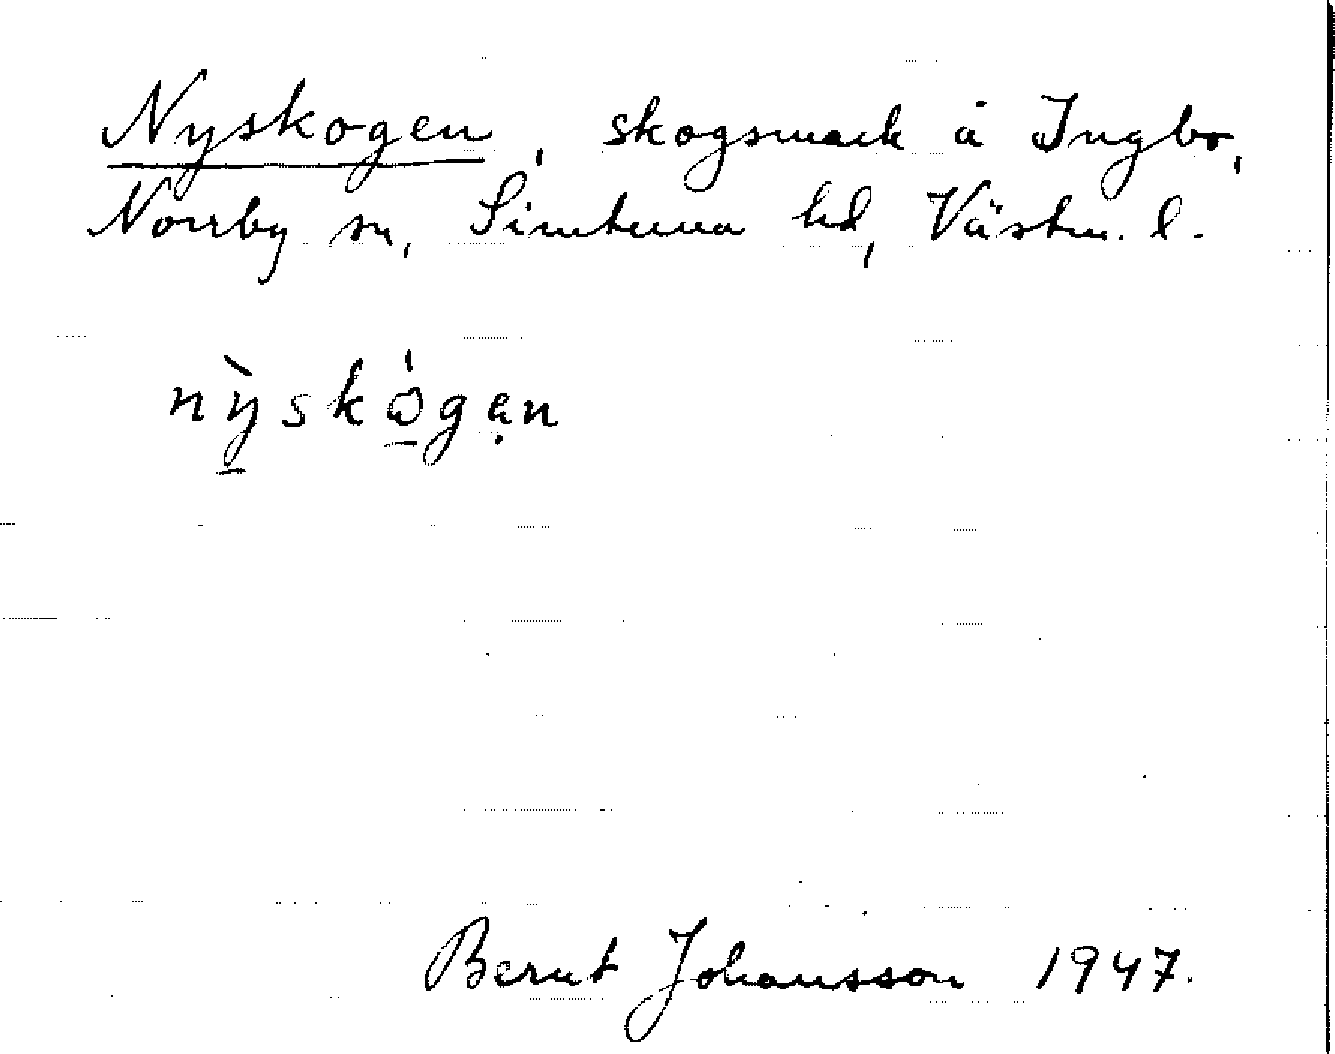 Nyskogen, skogsmark å Ingbo,
Norrby sn, Simtuna hd, Västm. l.
nỳskògen
Bernt Johansson 1947.